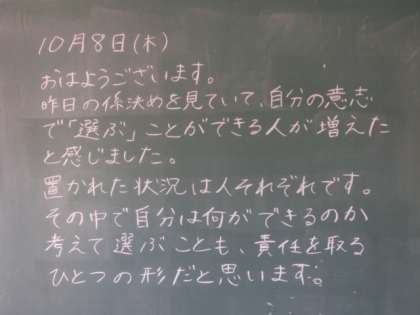 10月8日(木)
おはようございます。
昨日の係決めを見ていて、自分の意志
で「選ぶ」ことができる人が増えた
と感じました。
置かれた状況は人それぞれです。
その中で自分は何ができるのか
考えて選ぶことも、責任を取る
ひとつの形だと思います。